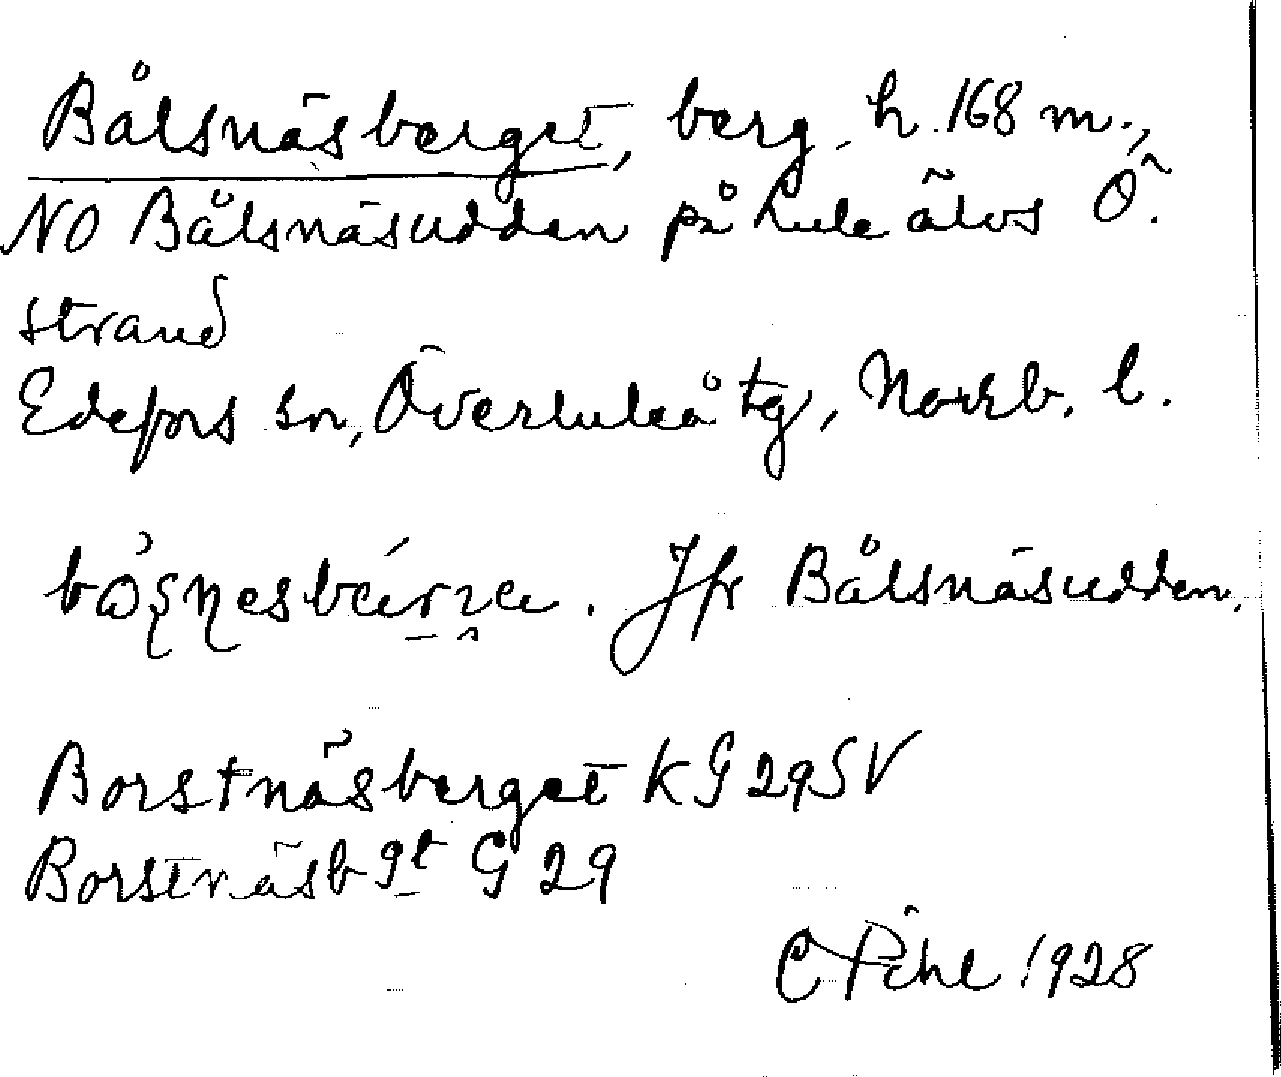 Bålsnäsberget, berg, h. 168 m.,
NO Bålsnäsudden på Lule älvs Ö.
strand
Edefors sn, Överluleå tg, Norrb. l.
Jfr Bålsnäsudden.
Borstnäsberget K G 29 SV
Borstnäsbgt G 29
C Pihl 1928